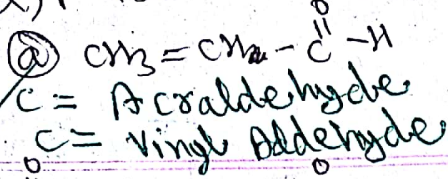 O
(a) CH3 = CH - C - H
C = Acraldehyde
C = Vinyl Aldehyde